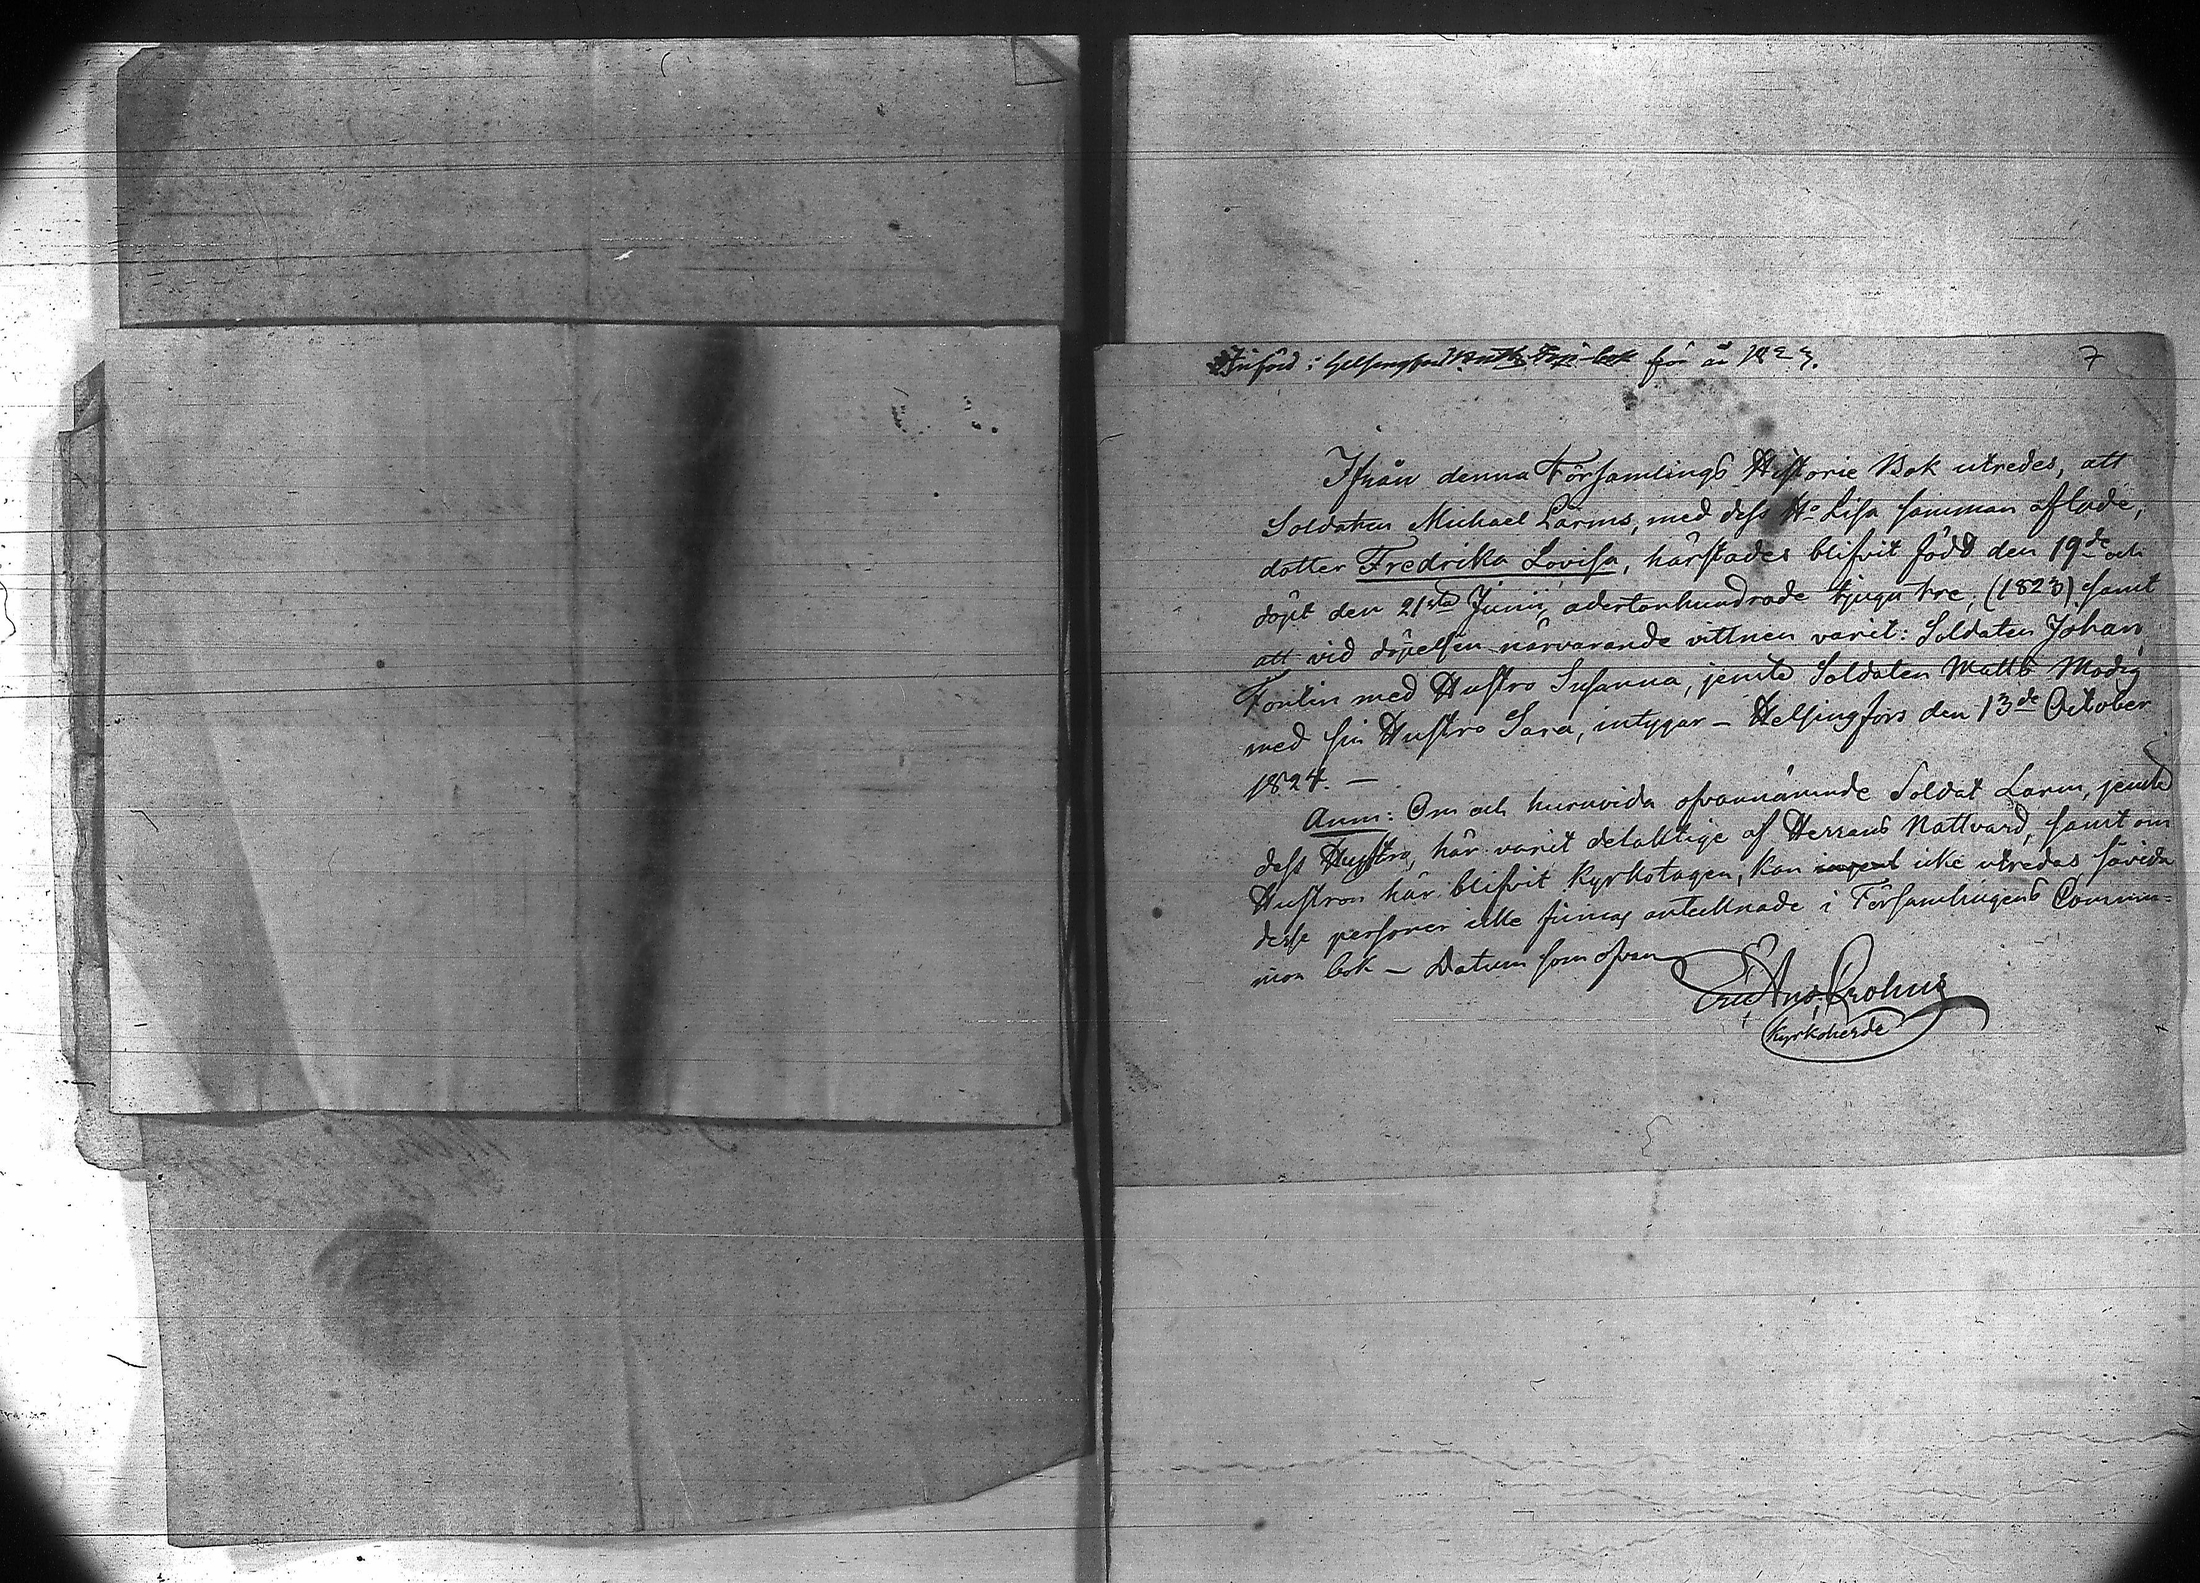 Införd i Helsingfors för år 1823.
7
Ifrån denna Församlings Historie Bok utredes, att
Soldaten Michael Larms, med dess Ho Lisa samman aflade,
dotter Fredrika Lovisa, härstädes blifvit född den 19de och
döpt den 21sta Junii, adertonhundrade tjugu tre, (1823) samt
att vid döpelsen närvarande vittnen varit: Soldaten Johan
Fontin med Hustro Susanna, jemte Soldaten Matts Modig
med sin Hustro Sara, intygar – Helsingfors den 13de October
1824. –
Anm: Om och huruvida ofvannämnde Soldat Larm, jemte
dess Hustro, här varit delaktige af Herrans Nattvard, samt om
Hustron här blifvit kyrkotagen, kan icke utredas, såvida
desse personer icke finnas antecknade i Församlingens Commu=
nion bok – Datum som ofvan
Eric Ans. Crohns
Kyrkoherde